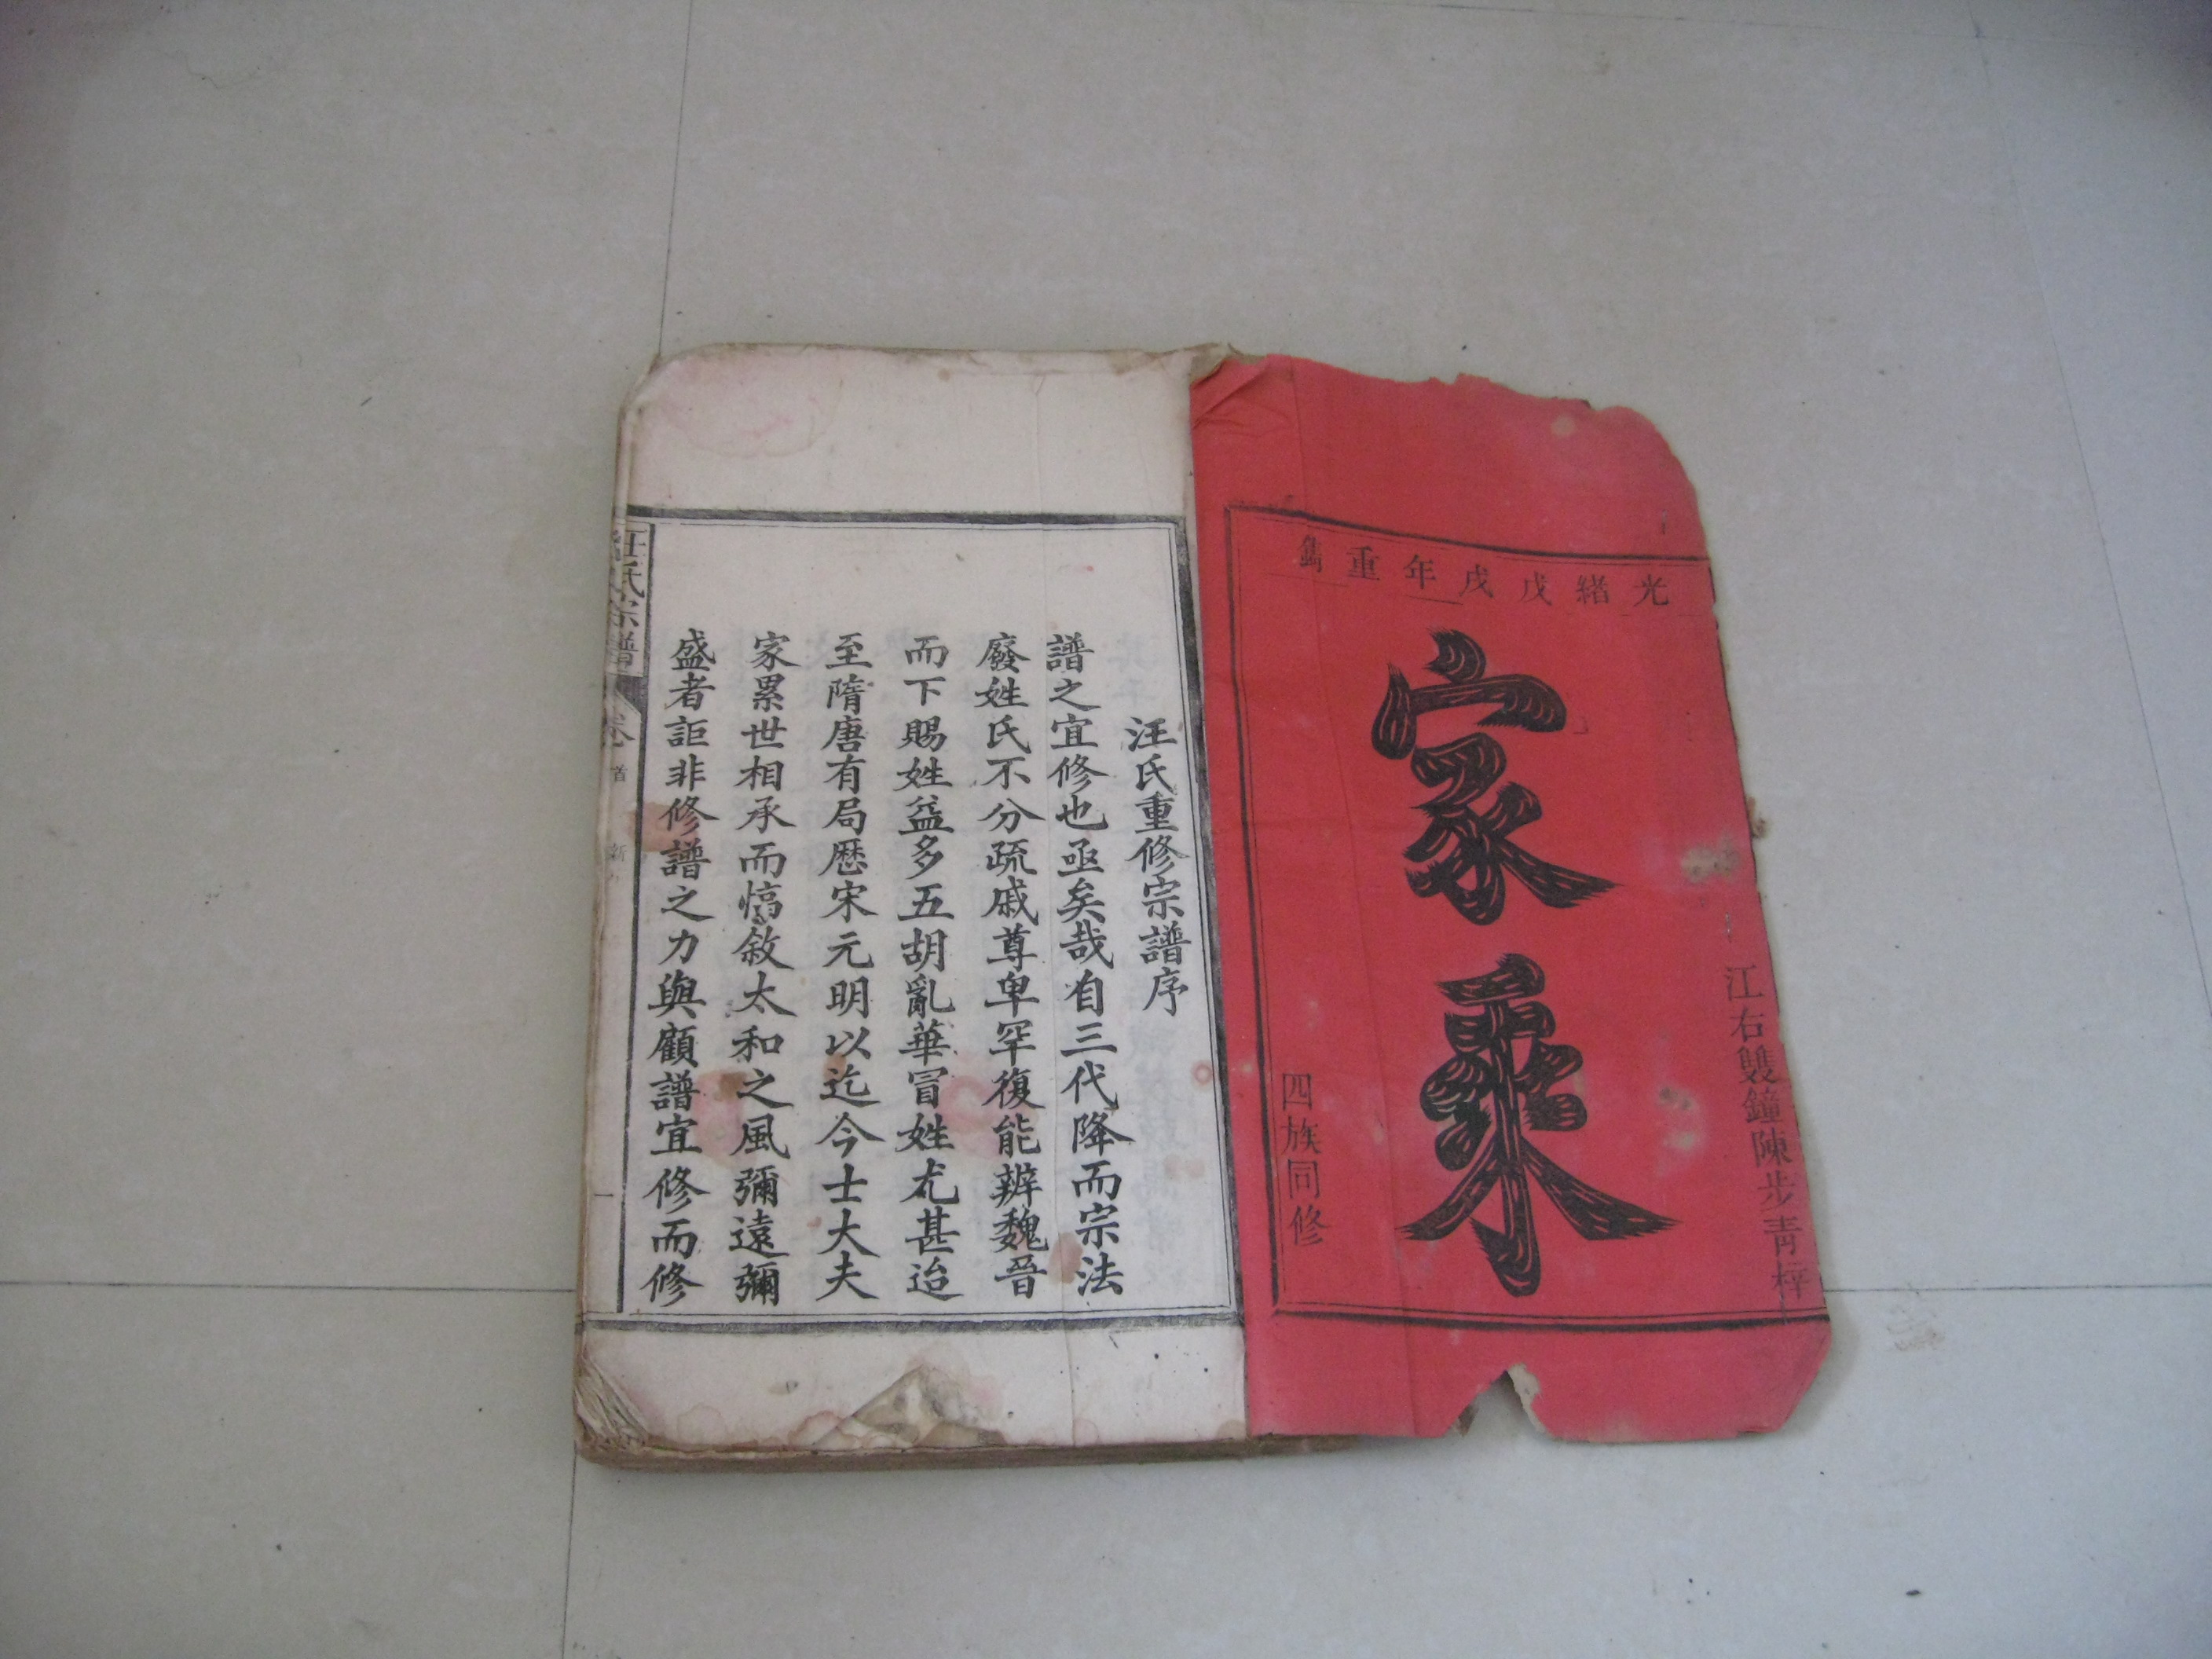 光緒戊戌年重鐫
江右雙鐘陳步青梓
家乘
四族同修
汪氏重修宗譜序
譜之宜修也亟矣哉自三代降而宗法
廢姓氏不分疏戚尊卑罕復能辨魏晉
而下賜姓益多五胡亂華冒姓尤甚迨
至隋唐有局歷宋元明以迄今士大夫
家累世相承而惇敘太和之風彌遠彌
盛者詎非修譜之力與顧譜宜修而修
汪氏宗譜
卷首
新
一